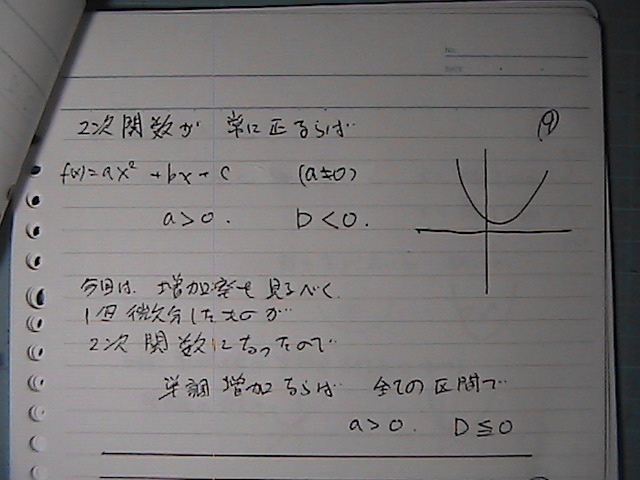 No.
DATE
2次関数が 常に正ならば (9)
f(x)=ax²+bx+c (a≠0)
a>0. D<0.
今回は、増加率を見るべく
1回微分したものが
2次関数になったので
単調増加ならば 全ての区間で
a>0. D≦0